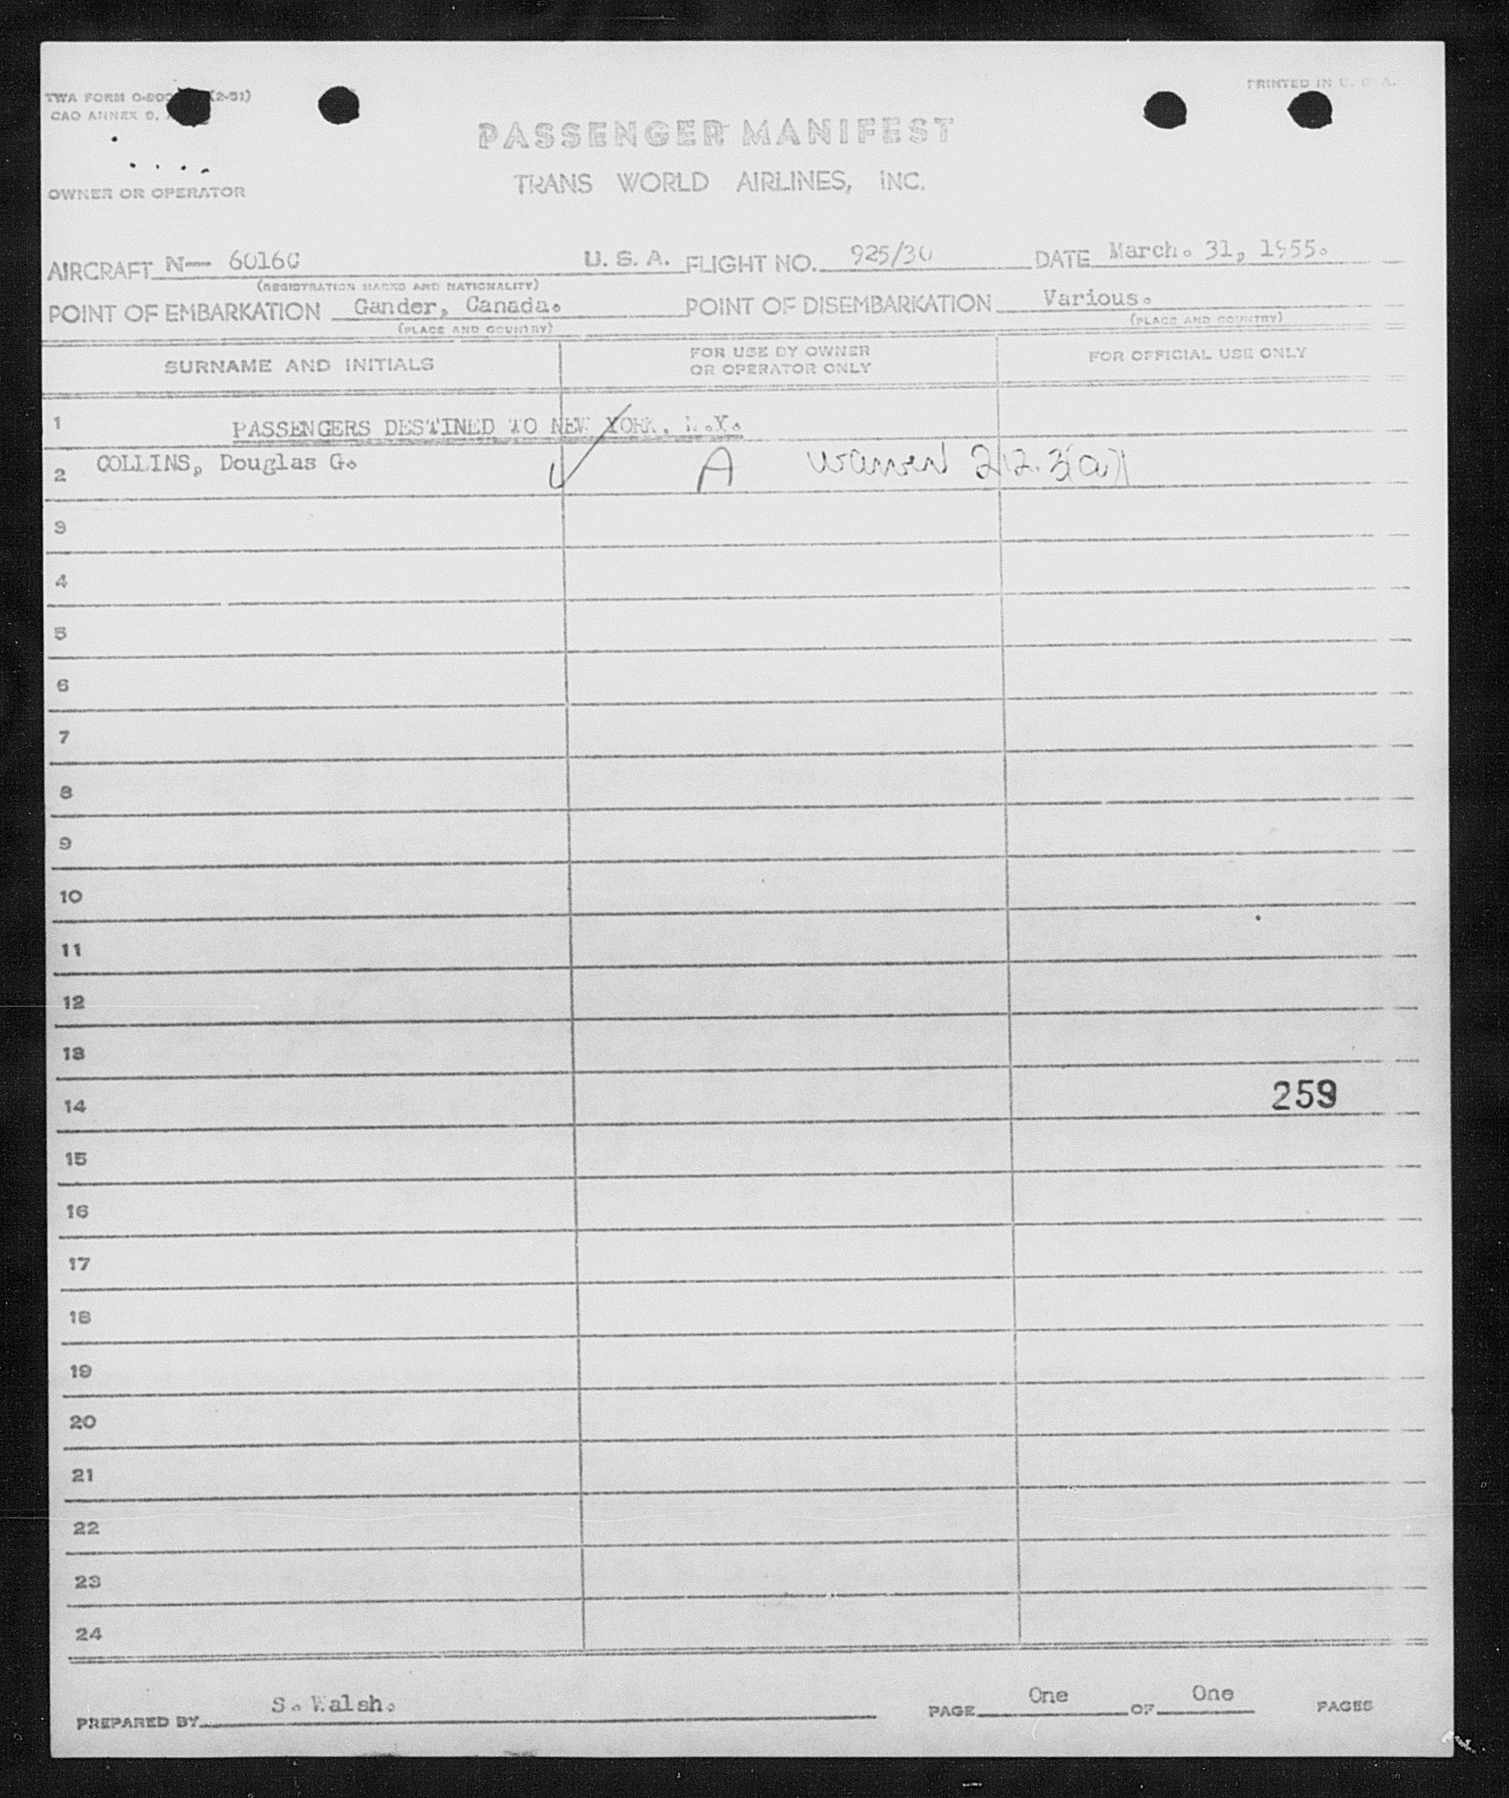 TWA FORM 0-800 (2-51)
PRINTED IN U. S. A.
CAO ANNEX 9,
PASSENGER MANIFEST
OWNER OR OPERATOR
TRANS WORLD AIRLINES, INC.
AIRCRAFT N— 6016C U. S. A. FLIGHT NO. 925/30 DATE March. 31, 1955.
(REGISTRATION MARKS AND NATIONALITY)
POINT OF EMBARKATION Gander, Canada. POINT OF DISEMBARKATION Various.
(PLACE AND COUNTRY) (PLACE AND COUNTRY)
SURNAME AND INITIALS FOR USE BY OWNER OR OPERATOR ONLY FOR OFFICIAL USE ONLY
1 PASSENGERS DESTINED TO NEW YORK, N.Y.
2 COLLINS, Douglas G. A 212.3(a)
3
4
5
6
7
8
9
10
11
12
13
14 259
15
16
17
18
19
20
21
22
23
24
PREPARED BY S. Walsh. PAGE One OF One PAGES